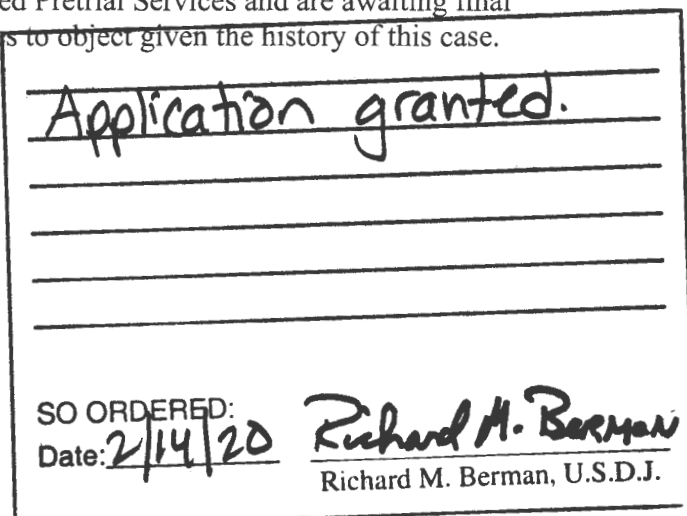 ed Pretrial Services and are awaiting final
s to object given the history of this case.
Application granted.
SO ORDERED:
Date: 2/14/20 Richard M. Berman
Richard M. Berman, U.S.D.J.